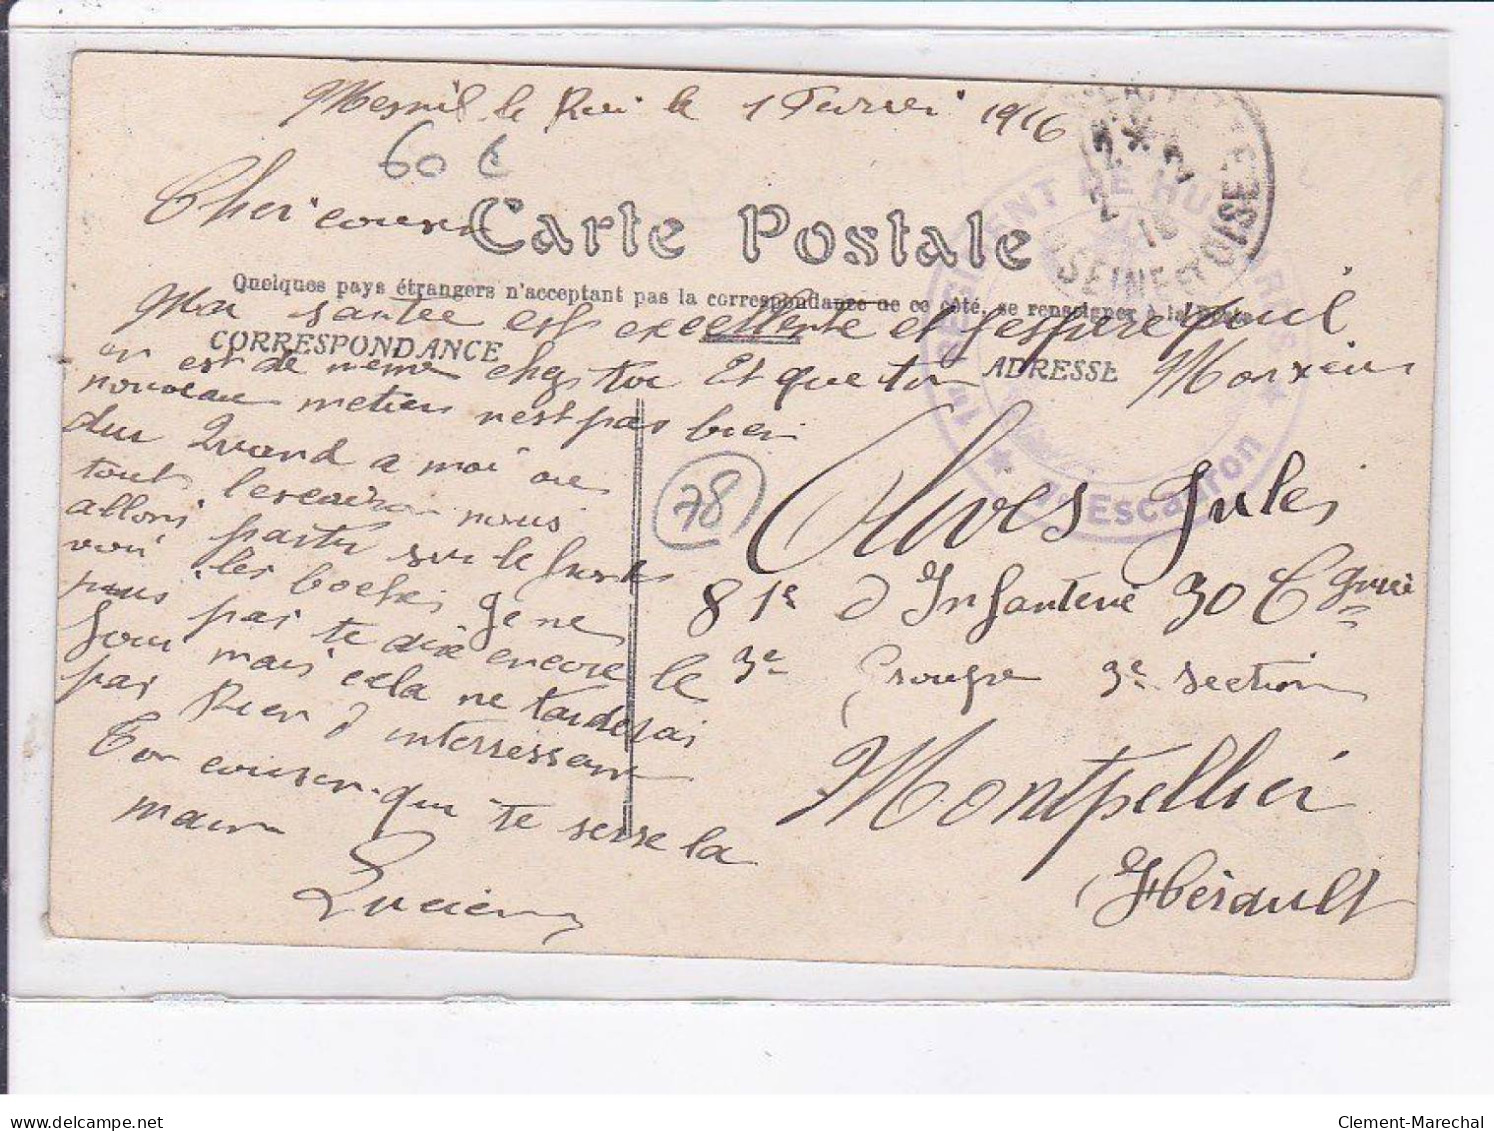 Mesnil le Roi le 1 Fevrier 1916
60 €
Cher cousin
Carte Postale
Quelques pays étrangers n'acceptent pas la correspondance de ce côté, se renseigner à la Poste
Ma santee est excellente et jespere quil
CORRESPONDANCE
ADRESSE
en est de meme chez toi Et que ton
nouveau metier nest pas bien
dur Quand a moi
tout nous
allons partir sur le front
voir les boches Je ne
puis pas te dire encore le
Jour mais cela ne tardera
pas Rien d interressant
Ton cousin qui te serre la
main
Lucien
78
Monsieur
Olives Jules
81e d Infanterie 30 Cgnie
3e Groupe 3e section
Montpellier
Herault
1er REGIMENT DE HUSSARDS
7e Escadron
SEINE ET OISE